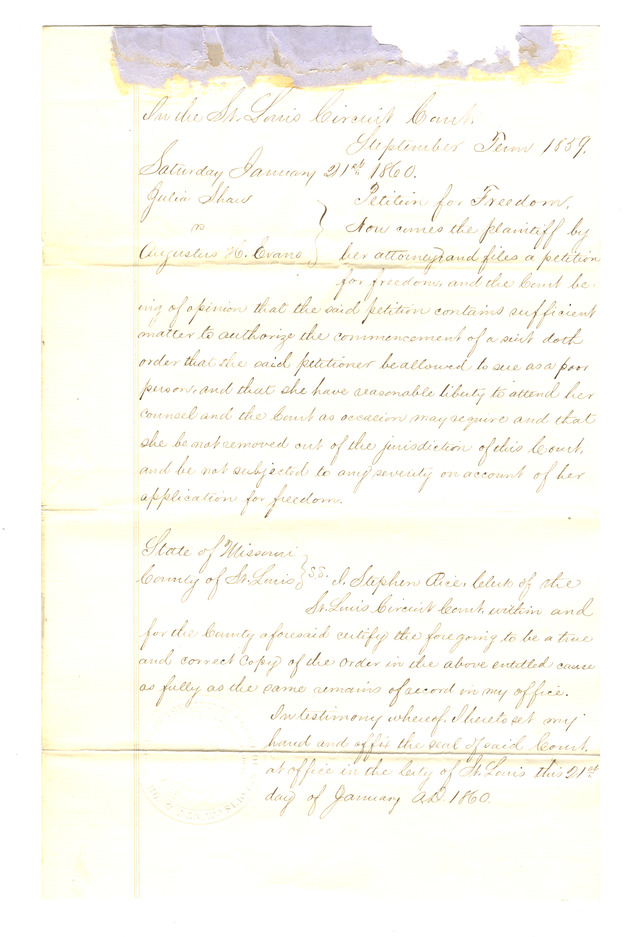 In the St. Louis Circuit Court.
September Term 1859.
Saturday January 21st 1860.
Julia Shaw
vs
Augustus H. Evans
Petition for Freedom.
Now comes the plaintiff by
her attorney, and files a petition
for freedom, and the Court be-
ing of opinion that the said petition contains sufficient
matter to authorize the commencement of a suit doth
order that the said petitioner be allowed to sue as a poor
person, and that she have reasonable liberty to attend her
counsel and the Court as occasion may require and that
she be not removed out of the jurisdiction of this Court,
and be not subjected to any severity on account of her
application for freedom.
State of Missouri
County of St. Louis } S.S. I, Stephen Rice, Clerk of the
St. Louis Circuit Court, within and
for the County aforesaid certify the foregoing to be a true
and correct copy of the order in the above entitled cause
as fully as the same remains of record in my office.
In testimony whereof, I hereto set my
hand and affix the seal of said Court,
at office in the City of St. Louis this 21st
day of January A.D. 1860.